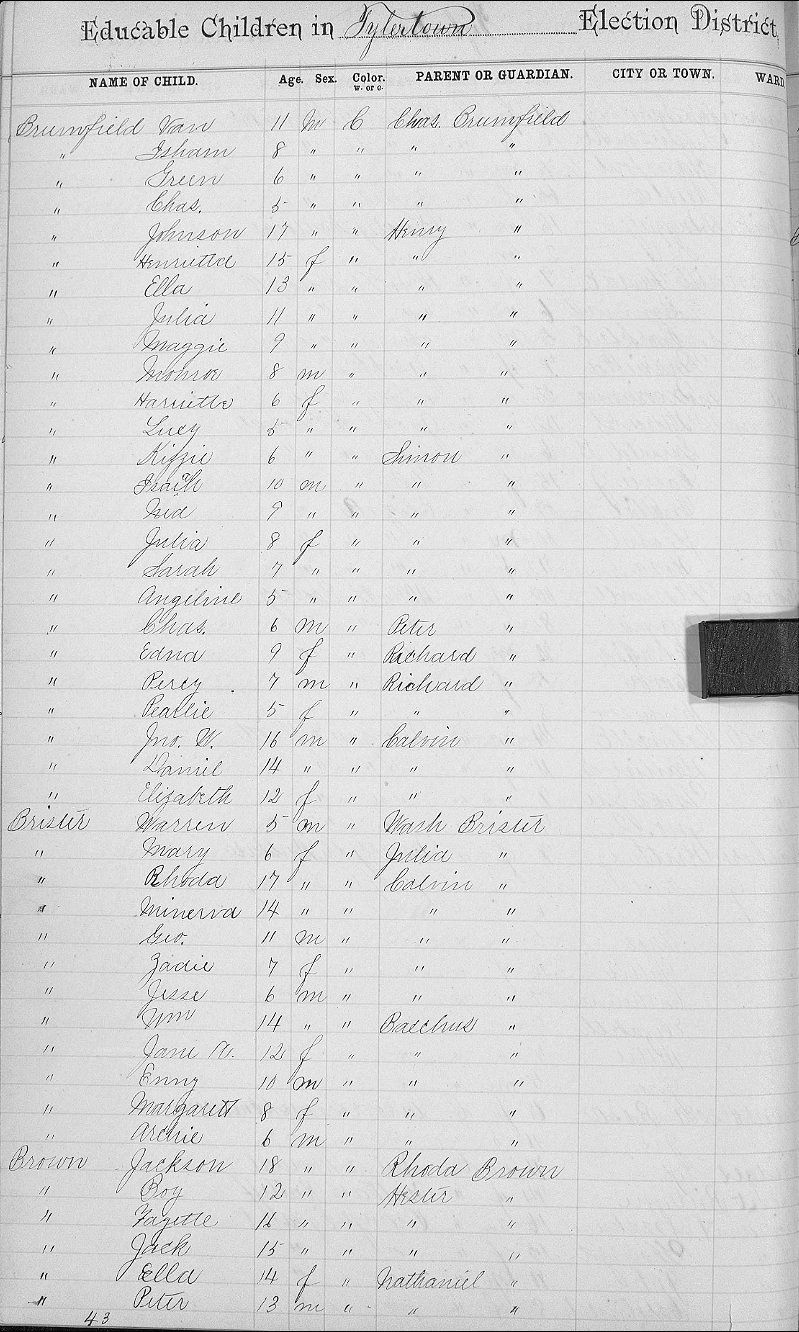 Educable Children in Tylertown Election District
NAME OF CHILD. Age. Sex. Color. W. or C. PARENT OR GUARDIAN. CITY OR TOWN. WARD
Brumfield Van 11 m C Chas. Brumfield
" Isham 8 " " " "
" Green 6 " " " "
" Chas. 5 " " " "
" Johnson 17 " " Henry "
" Henrietta 15 f " " "
" Ella 13 " " " "
" Julia 11 " " " "
" Maggie 9 " " " "
" Monroe 8 m " " "
" Harriette 6 f " " "
" Lucy 5 " " " "
" Kizzie 6 " " Simon "
" 10 m " " "
" Ned 9 " " " "
" Julia 8 f " " "
" Sarah 7 " " " "
" Angeline 5 " " " "
" Chas. 6 m " Peter "
" Edna 9 f " Richard "
" Percy 7 m " Richard "
" Pearlie 5 f " " "
" Jno. W. 16 m " Calvin "
" Daniel 14 " " " "
" Elizabeth 12 f " " "
Brister Warren 5 m " Wash Brister
" Mary 6 f " Julia "
" Rhoda 17 " " Calvin "
" Minerva 14 " " " "
" Geo. 11 m " " "
" Zadie 7 f " " "
" Jesse 6 m " " "
" Wm 14 " " Bacchus "
" Jane 12 f " " "
" Enny 10 m " " "
" Margarett 8 f " " "
" Archie 6 m " " "
Brown Jackson 18 " " Rhoda Brown
" Roy 12 " " Hester "
" Fayette 16 " " " "
" Jack 15 " " " "
" Ella 14 f " Nathaniel "
" Peter 13 m " " "
43